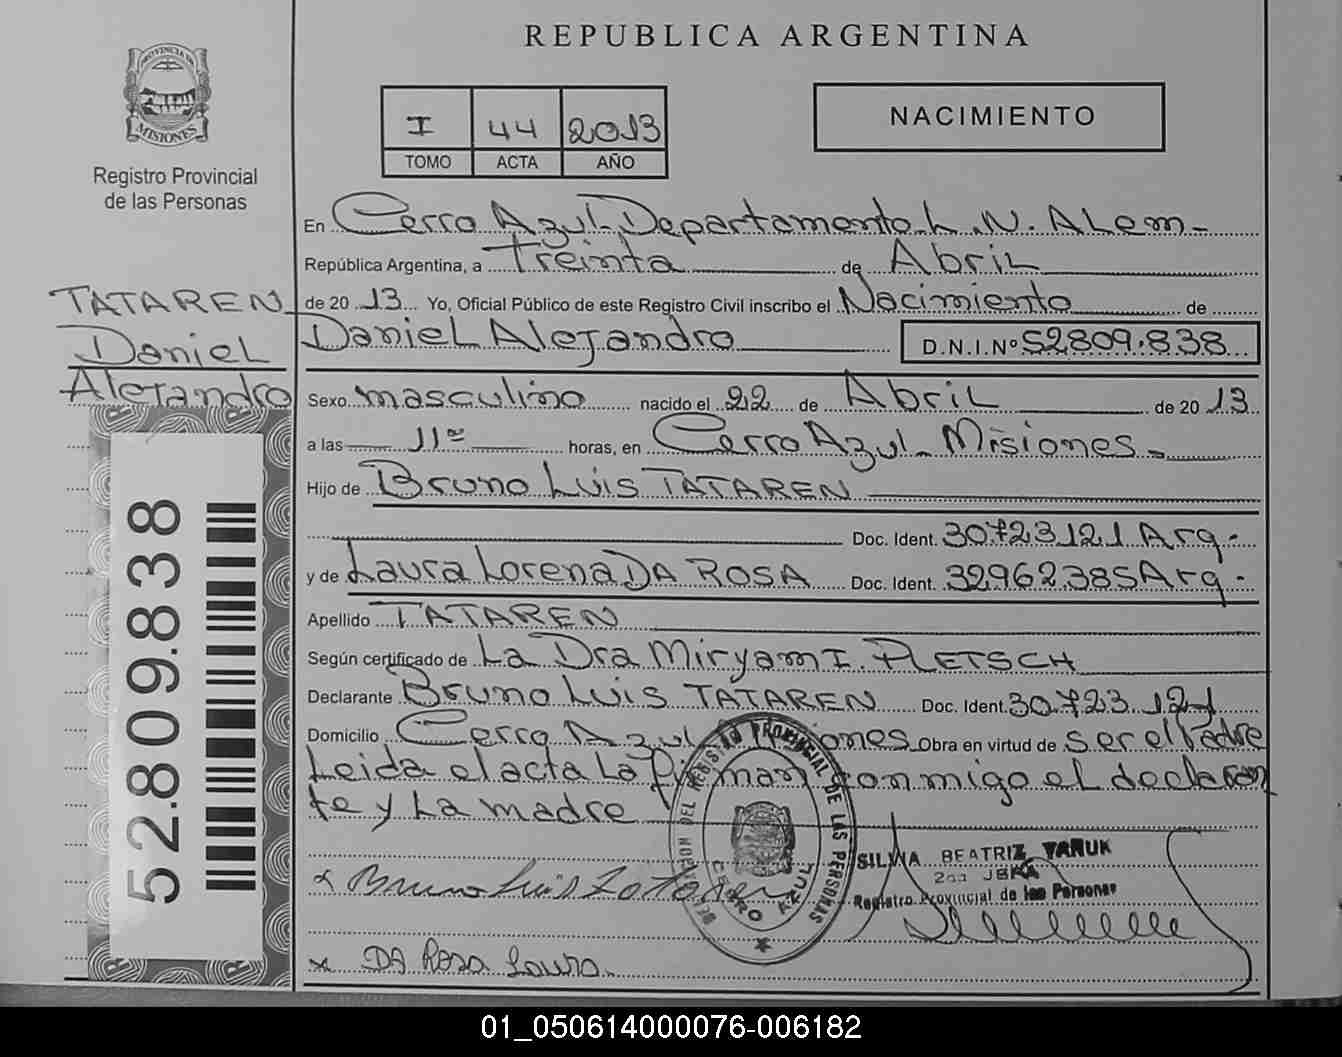 REPUBLICA ARGENTINA
PROVINCIA DE
MISIONES
Registro Provincial
de las Personas
I 44 2013
TOMO ACTA AÑO
NACIMIENTO
En Cerro Azul-Departamento L.N. ALem-
República Argentina, a Treinta de AbriL
de 20 13 Yo, Oficial Público de este Registro Civil inscribo el Nacimiento de
TATAREN
DanieL
Alejandro
DanieL Alejandro D.N.I.Nº 52809.838
Sexo masculino nacido el 22 de AbriL de 20 13
a las 11 horas, en Cerro Azul- Misiones-
Hijo de Bruno Luis TATAREN
Doc. Ident. 30723121 Arg-
y de Laura Lorena DA ROSA Doc. Ident. 32962385 Arg-
Apellido TATAREN
Según certificado de La Dra Miryam I. PLETSCH
Declarante Bruno Luis TATAREN Doc. Ident. 30.723.121
Domicilio Cerro Azul Misiones Obra en virtud de ser el Padre
Leida el acta La firman conmigo el declaran
te y La madre
52.809.838
DELEGACION DEL REGISTRO PROVINCIAL DE LAS PERSONAS
CERRO AZUL
SILVIA BEATRIZ YARUK
2da JEFA
Registro Provincial de las Personas
x Bruno Luis Tataren
x DA Rosa Laura
01_050614000076-006182